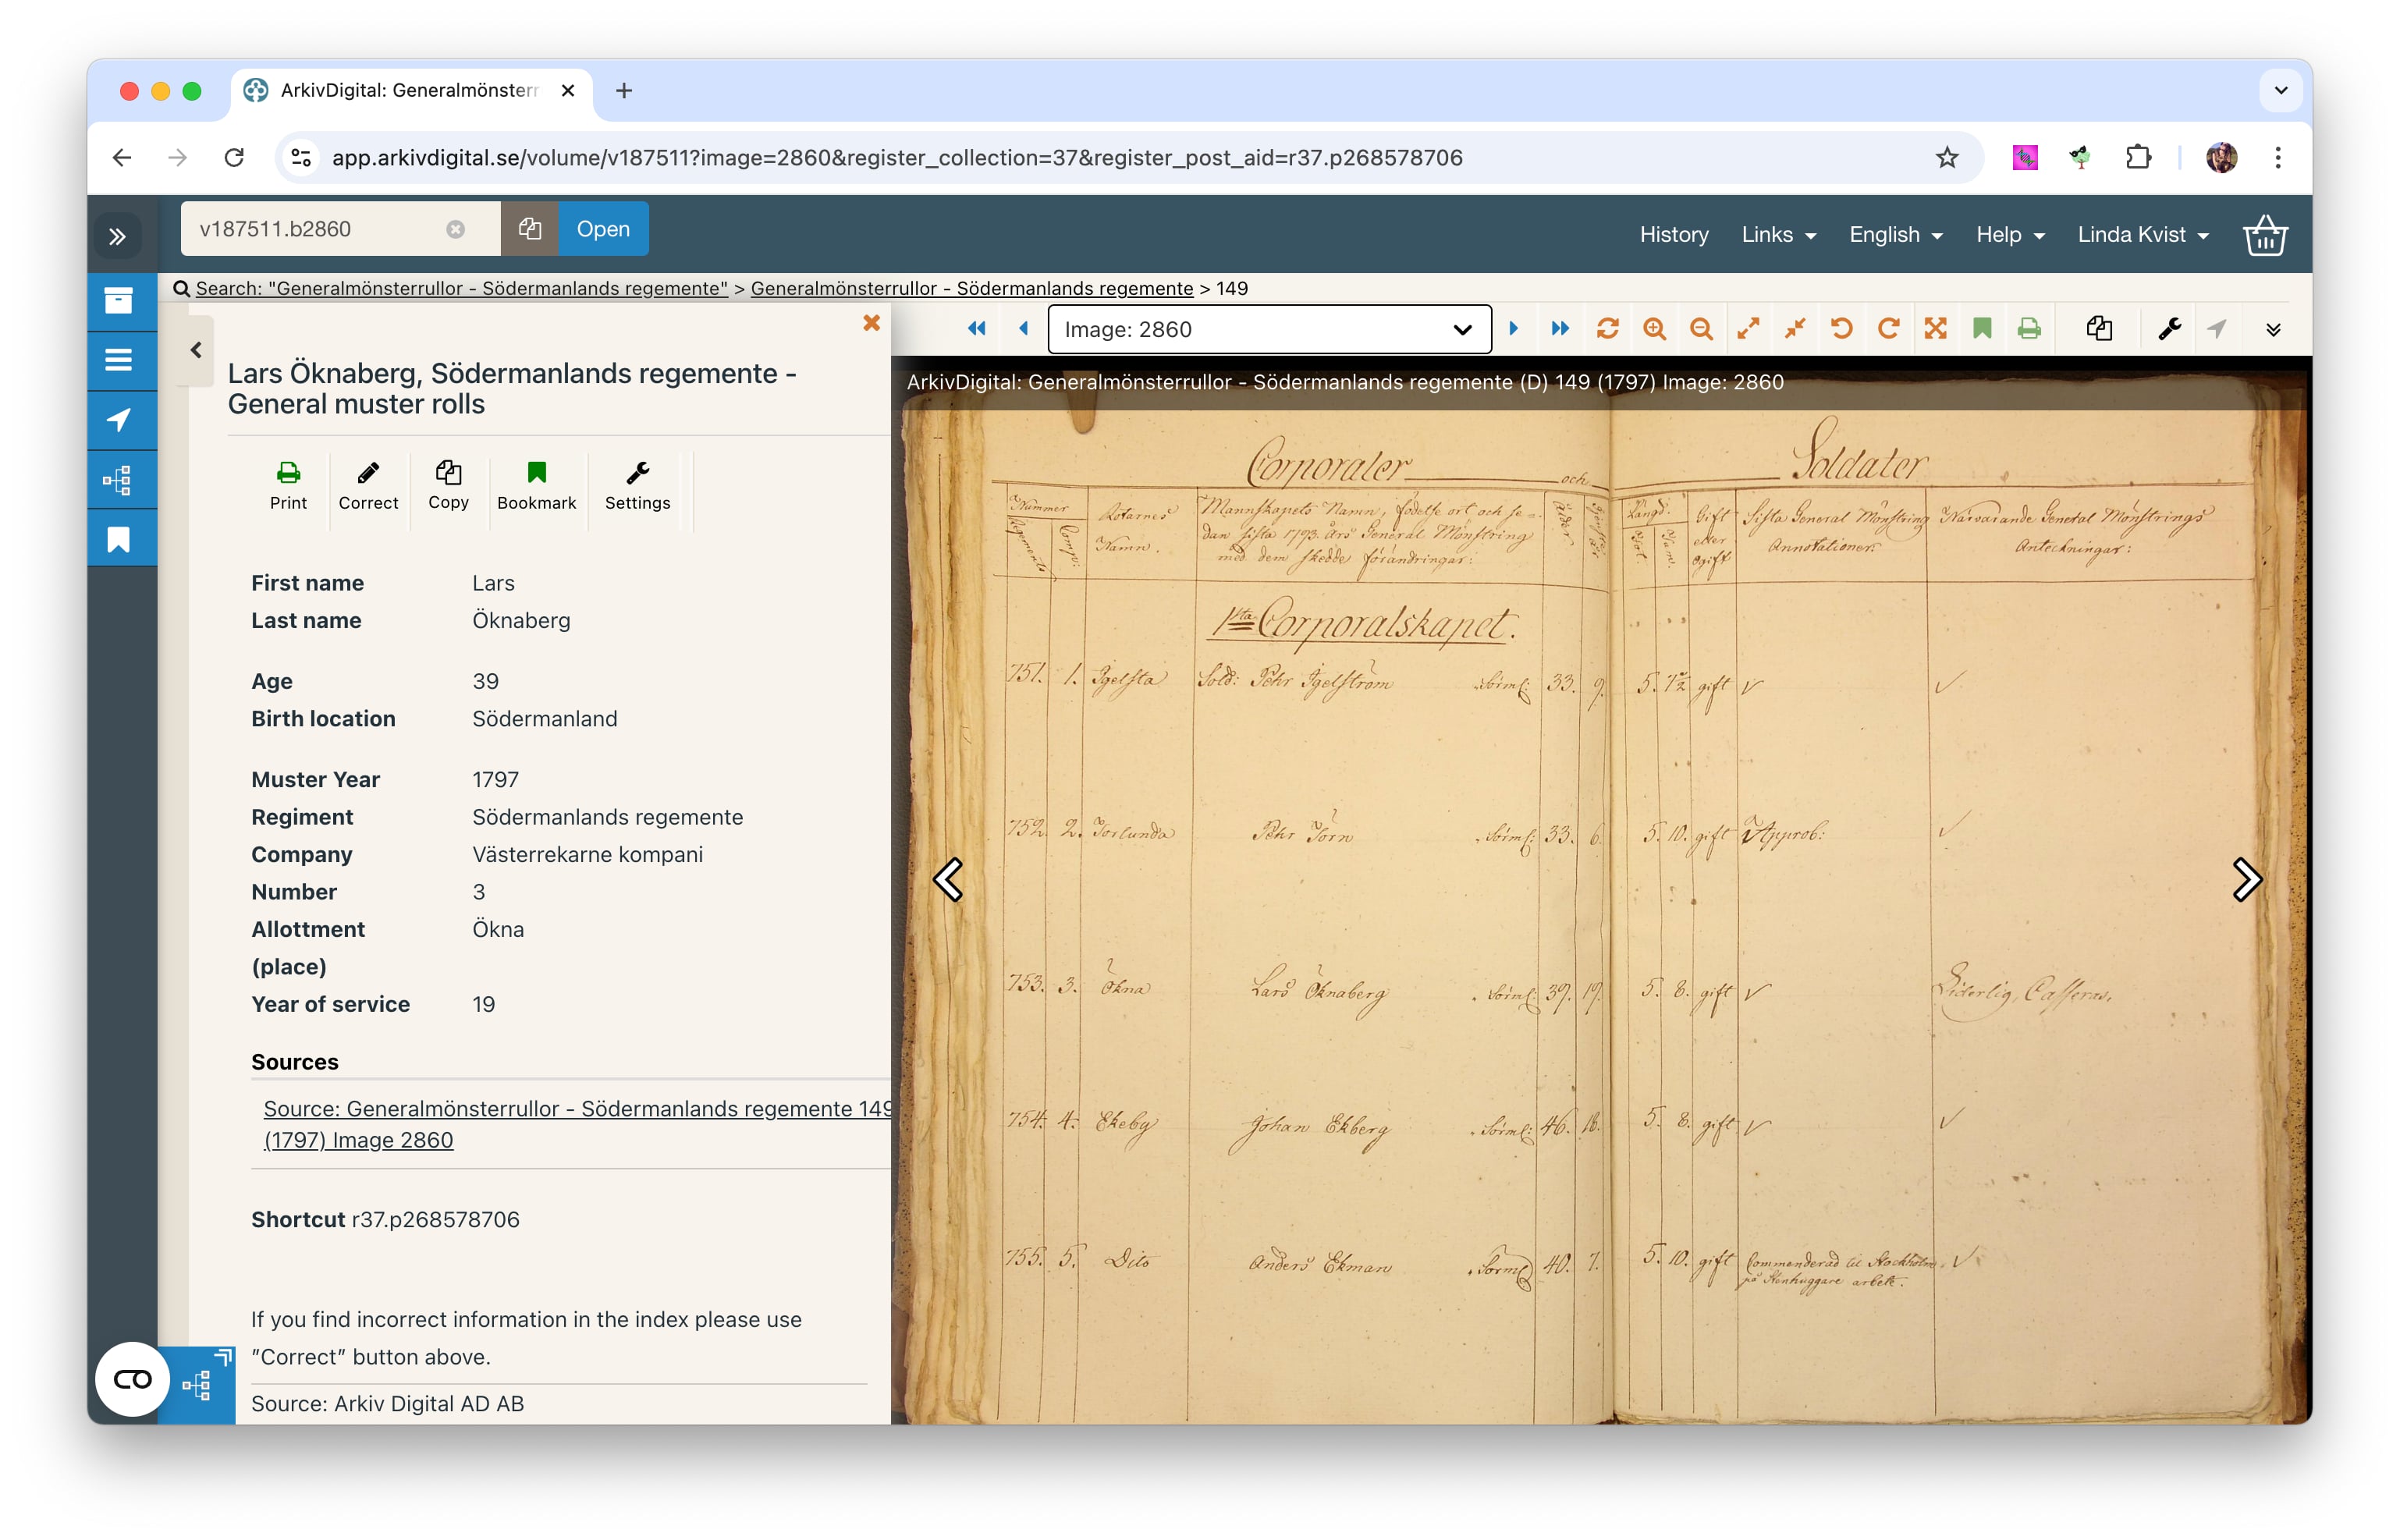 ArkivDigital: Generalmönsterr
app.arkivdigital.se/volume/v187511?image=2860&register_collection=37&register_post_aid=r37.p268578706
v187511.b2860
Open
History
Links
English
Help
Linda Kvist
Search: "Generalmönsterrullor - Södermanlands regemente" > Generalmönsterrullor - Södermanlands regemente > 149
Image: 2860
Lars Öknaberg, Södermanlands regemente -
General muster rolls
Print
Correct
Copy
Bookmark
Settings
First name Lars
Last name Öknaberg
Age 39
Birth location Södermanland
Muster Year 1797
Regiment Södermanlands regemente
Company Västerrekarne kompani
Number 3
Allottment Ökna
(place)
Year of service 19
Sources
Source: Generalmönsterrullor - Södermanlands regemente 149
(1797) Image 2860
Shortcut r37.p268578706
If you find incorrect information in the index please use
"Correct" button above.
Source: Arkiv Digital AD AB
ArkivDigital: Generalmönsterrullor - Södermanlands regemente (D) 149 (1797) Image: 2860
Corporaler och Soldater
Nummer
Regements
Comp:
Rotarnes
Namn.
Manskapets Namn, födelse ort och se-
dan sista 1793 Års General Mönstring
med dem skedde förändringar:
Ålder
Längd.
Gift
eller
ogift
Sista General Mönstring
Annotationer
Närvarande General Mönstrings
Anteckningar:
1sta Corporalskapet.
751. 1. Igelsta Sold: Pehr Igelström Sörml: 33. 9. 5. 7½ gift
752. 2. Torlunda Pehr Törn Sörml: 33. 6. 5. 10. gift Approb:
753. 3. Ökna Lars Öknaberg Sörml: 39. 19. 5. 8. gift Liderlig, Casseras.
754. 4. Ekeby Johan Ekberg Sörml: 46. 18. 5. 8. gift
755. 5. Dito Anders Ekman Sörml: 40. 7. 5. 10. gift Commenderad til Stockholm
på Stenhuggare arbete.